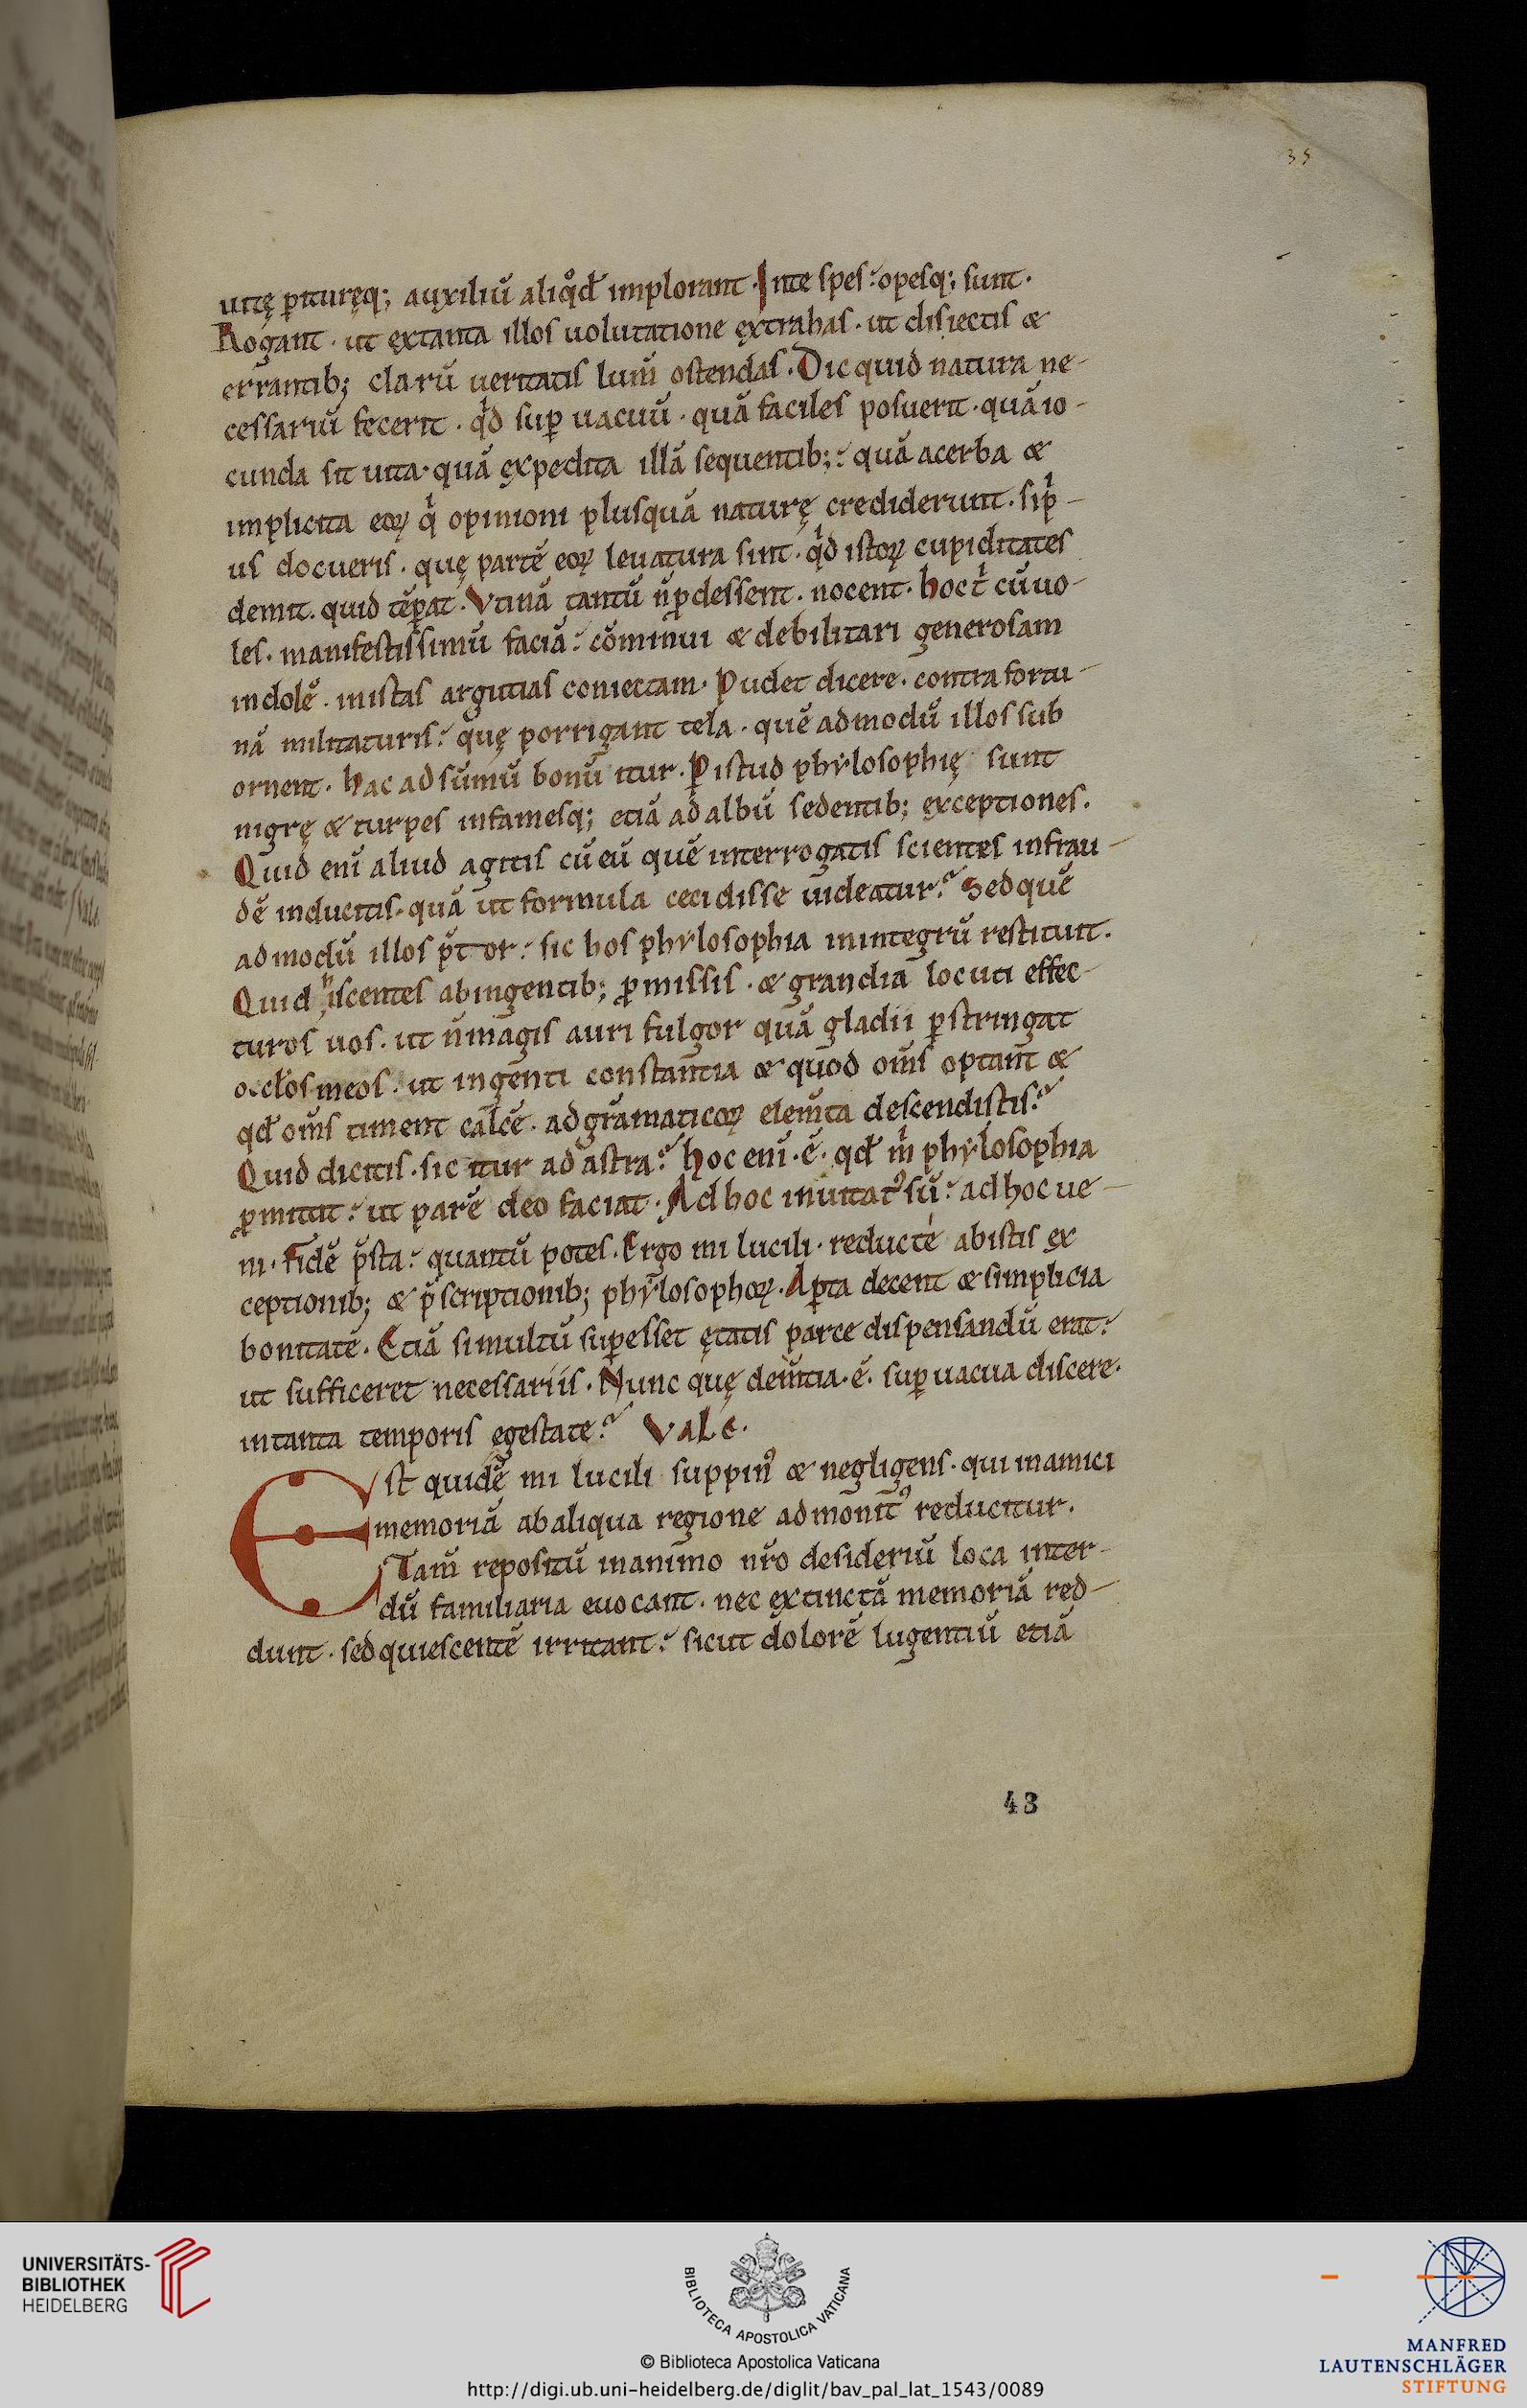 35
uitę ꝑituręq; auxiliū aliq̊d̄ implorant. Inte spes: opesq; sunt.
Rogant. ut extanta illos uolutatione extrahas. ut disiectis &
errantib; clarū ueritatis lum̄ ostendas. Dic quid natura ne-
cessariū fecerit. qͥd suꝑ uacuū. quā faciles posuerit. quā io-
cunda sit uita. quā expedita illā sequentib;: quā acerba &
implicita eoꝝ qͥ opinioni plusquā naturę crediderunt. sipͥ-
us docueris. quę partē eoꝝ leuatura sint. qͥd istoꝝ cupiditates
demit. quid tēꝑat. Vtinā tantū n̄ ꝓdessent. nocent. hoc tͥ cū uo-
les. manifestissimū faciā: cōminui & debilitari generosam
indolē. inistas argutias coniectam. Pudet dicere. contra fortu-
nā militaturis: quę porrigant tela. quē admodū illos sub
ornent. hac ad sūmū bonū itur. P istud phylosophię sunt
nigrę & turpes infamesq; etiā ad albū sedentib; exceptiones.
Quid enī aliud agitis cū eū quē interrogatis scientes infrau-
dē inducitis. quā ut formula cecidisse uideatur? Sed quē
admodū illos p̄tor: sic hos phylosophia inintegrū restituit.
Quid discentes abingentib; ꝓmissis. & grandia locuti effec-
turos uos. ut n̄ magis auri fulgor quā gladii ꝑstringat
oclos meos. ut ingenti constantia & quod om̄s optant &
qd̄ om̄s timent calcē. ad grāmaticoꝝ elem̄ta descendistis?
Quid dicitis. sic itur ad astra? hoc enī. ē. qd̄ mͥ phylosophia
ꝓmittit: ut parē deo faciat. Ad hoc inuitatꝰ sū: ad hoc ue-
ni. Fidē p̄sta: quantū potes. Ergo mi lucili. reduc te abistis ex
ceptionib; & p̄scriptionib; phylosophoꝝ. Aꝑta decent & simplicia
bonitatē. Etiā simultū suꝑesset ętatis parce dispensandū erat:
ut sufficeret necessariis. Nunc quę dem̄tia. ē. suꝑ uacua discere.
intanta temporis egestate? Vale.
Est quidē mi lucili suppinꝰ & negligens. qui inamici
memoriā abaliqua regione admonitꝰ reducitur.
Tam̄ repositū inanimo nr̄o desideriū loca inter-
dū familiaria euocant. nec extinctā memoriā red-
dunt. sed quiescentē irritant: sicut dolorē lugentiū etiā
43
UNIVERSITÄTS-
BIBLIOTHEK
HEIDELBERG
BIBLIOTECA APOSTOLICA VATICANA
© Biblioteca Apostolica Vaticana
http://digi.ub.uni-heidelberg.de/diglit/bav_pal_lat_1543/0089
MANFRED
LAUTENSCHLÄGER
STIFTUNG